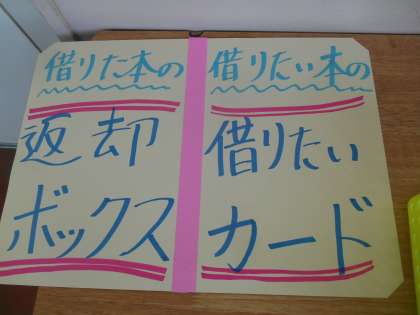 借りた本の
返却
ボックス
借りたい本の
借りたい
カード